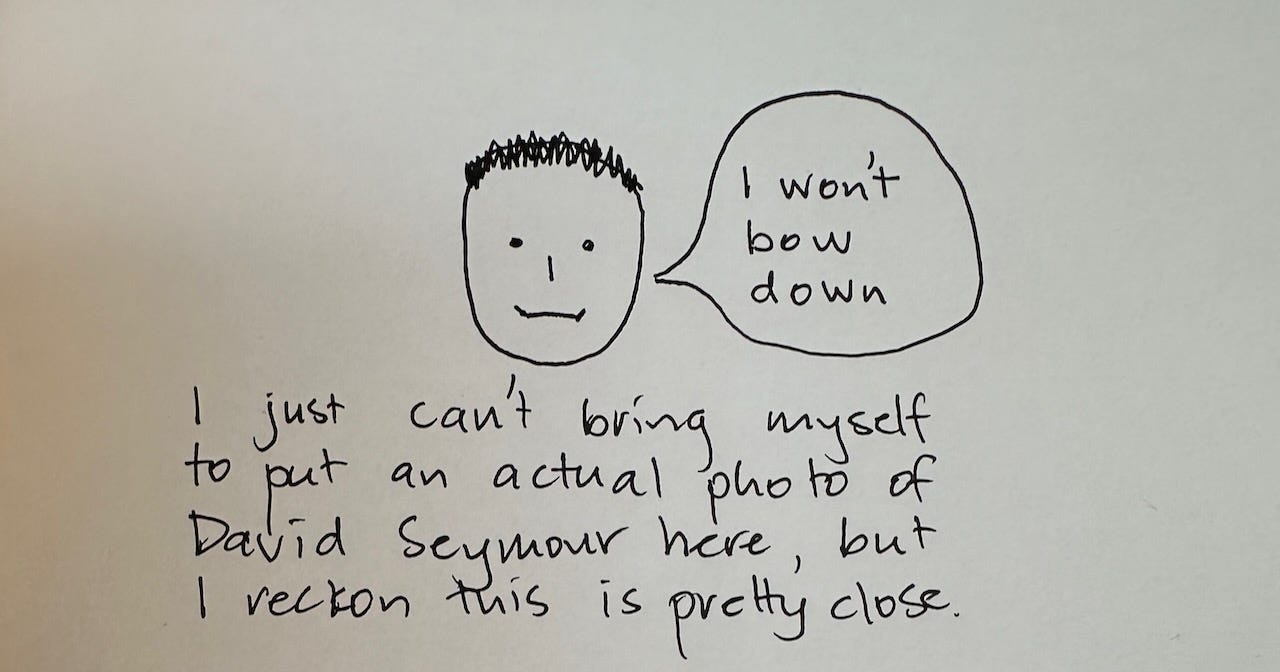 I won't
bow
down
I just can't bring myself
to put an actual photo of
David Seymour here, but
I reckon this is pretty close.